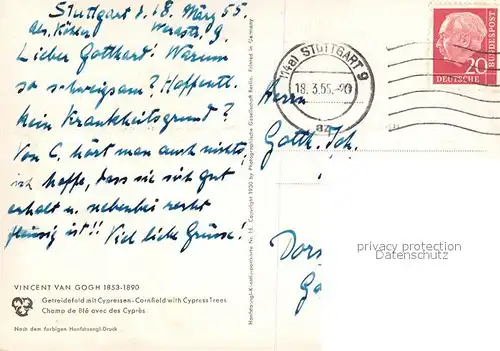 Stuttgart d. 18. März 55.
Werastr. 9.
Lieber Gotthard! Warum
so schweigsam? Hoffentl.
kein Krankheitsgrund?
Von C. hört man auch nichts,
ich hoffe, dass sie sich gut
erholt u. nebenbei recht
fleissig ist!! Viel liebe Grüsse!
VINCENT VAN GOGH 1853-1890
Getreidefeld mit Cypressen - Cornfield with Cypress Trees
Champ de Blé avec des Cyprès
Nach dem farbigen Hanfstaengl-Druck
Hanfstaengl-Künstlerpostkarte Nr. 15. Copyright 1930 by Photographische Gesellschaft Berlin. Printed in Germany
(14a) STUTTGART 9
18. 3. 55.-20
az
20
DEUTSCHE
BUNDESPOST
Herrn
Gotth. Joh.
privacy protection
DataGuard